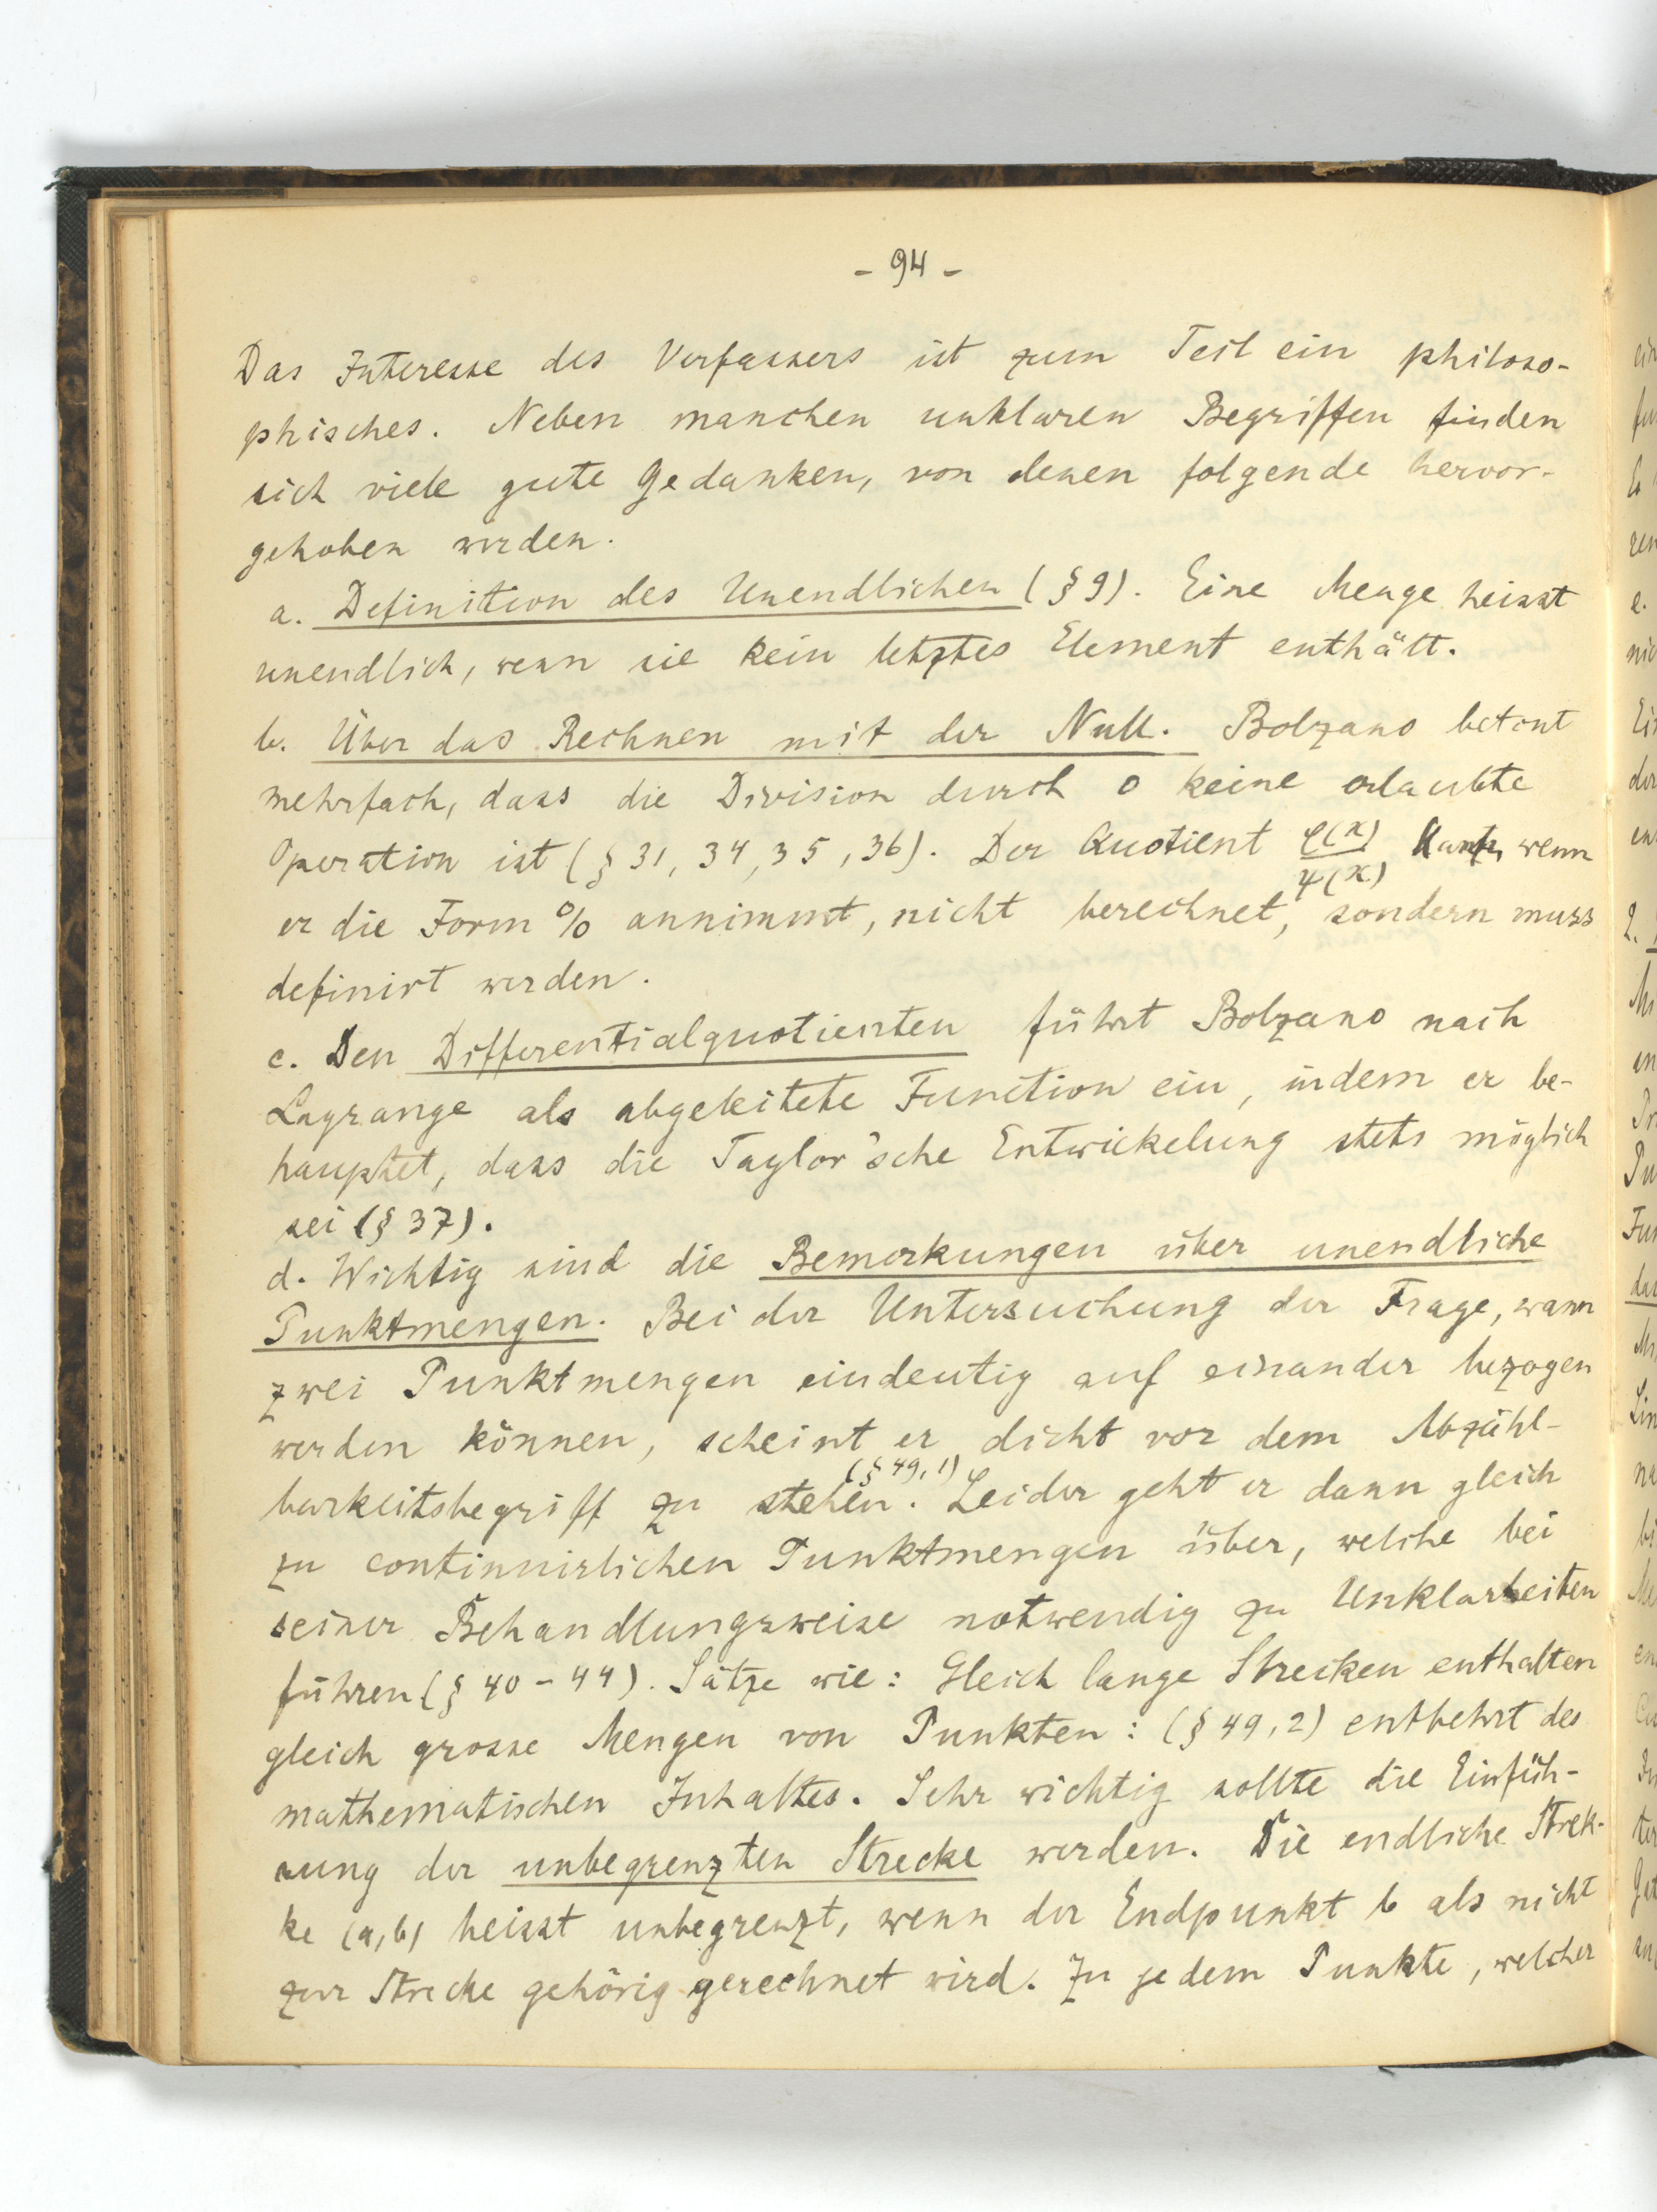 - 94 -
Das Interesse des Verfassers ist zum Teil ein philoso-
phisches. Neben manchen unklaren Begriffen finden
sich viele gute Gedanken, von denen folgende hervor-
gehoben werden.
a. Definition des Unendlichen (§ 9). Eine Menge heisst
unendlich, wenn sie kein letztes Element enthält.
b. Über das Rechnen mit der Null. Bolzano betont
mehrfach, dass die Division durch 0 keine erlaubte
Operation ist (§ 31, 34, 35, 36). Der Quotient φ(x)/ψ(x) kann, wenn
er die Form 0/0 annimmt, nicht berechnet, sondern muss
definirt werden.
c. Den Differentialquotienten führt Bolzano nach
Lagrange als abgeleitete Function ein, indem er be-
hauptet, dass die Taylor'sche Entwickelung stets möglich
sei (§ 37).
d. Wichtig sind die Bemerkungen über unendliche
Punktmengen. Bei der Untersuchung der Frage, wann
zwei Punktmengen eindeutig auf einander bezogen
werden können, scheint er dicht vor dem Abzähl-
barkeitsbegriff zu stehen (§ 49, 1). Leider geht er dann gleich
zu continuirlichen Punktmengen über, welche bei
seiner Behandlungsweise notwendig zu Unklarheiten
führen (§ 40 - 44). Sätze wie: Gleich lange Strecken enthalten
gleich grosse Mengen von Punkten: (§ 49, 2) entbehrt des
mathematischen Inhaltes. Sehr wichtig sollte die Einfüh-
rung der unbegrenzten Strecke werden. Die endliche Strek-
ke (a, b) heisst unbegrenzt, wenn der Endpunkt b als nicht
zur Strecke gehörig gerechnet wird. Zu jedem Punkte, welcher